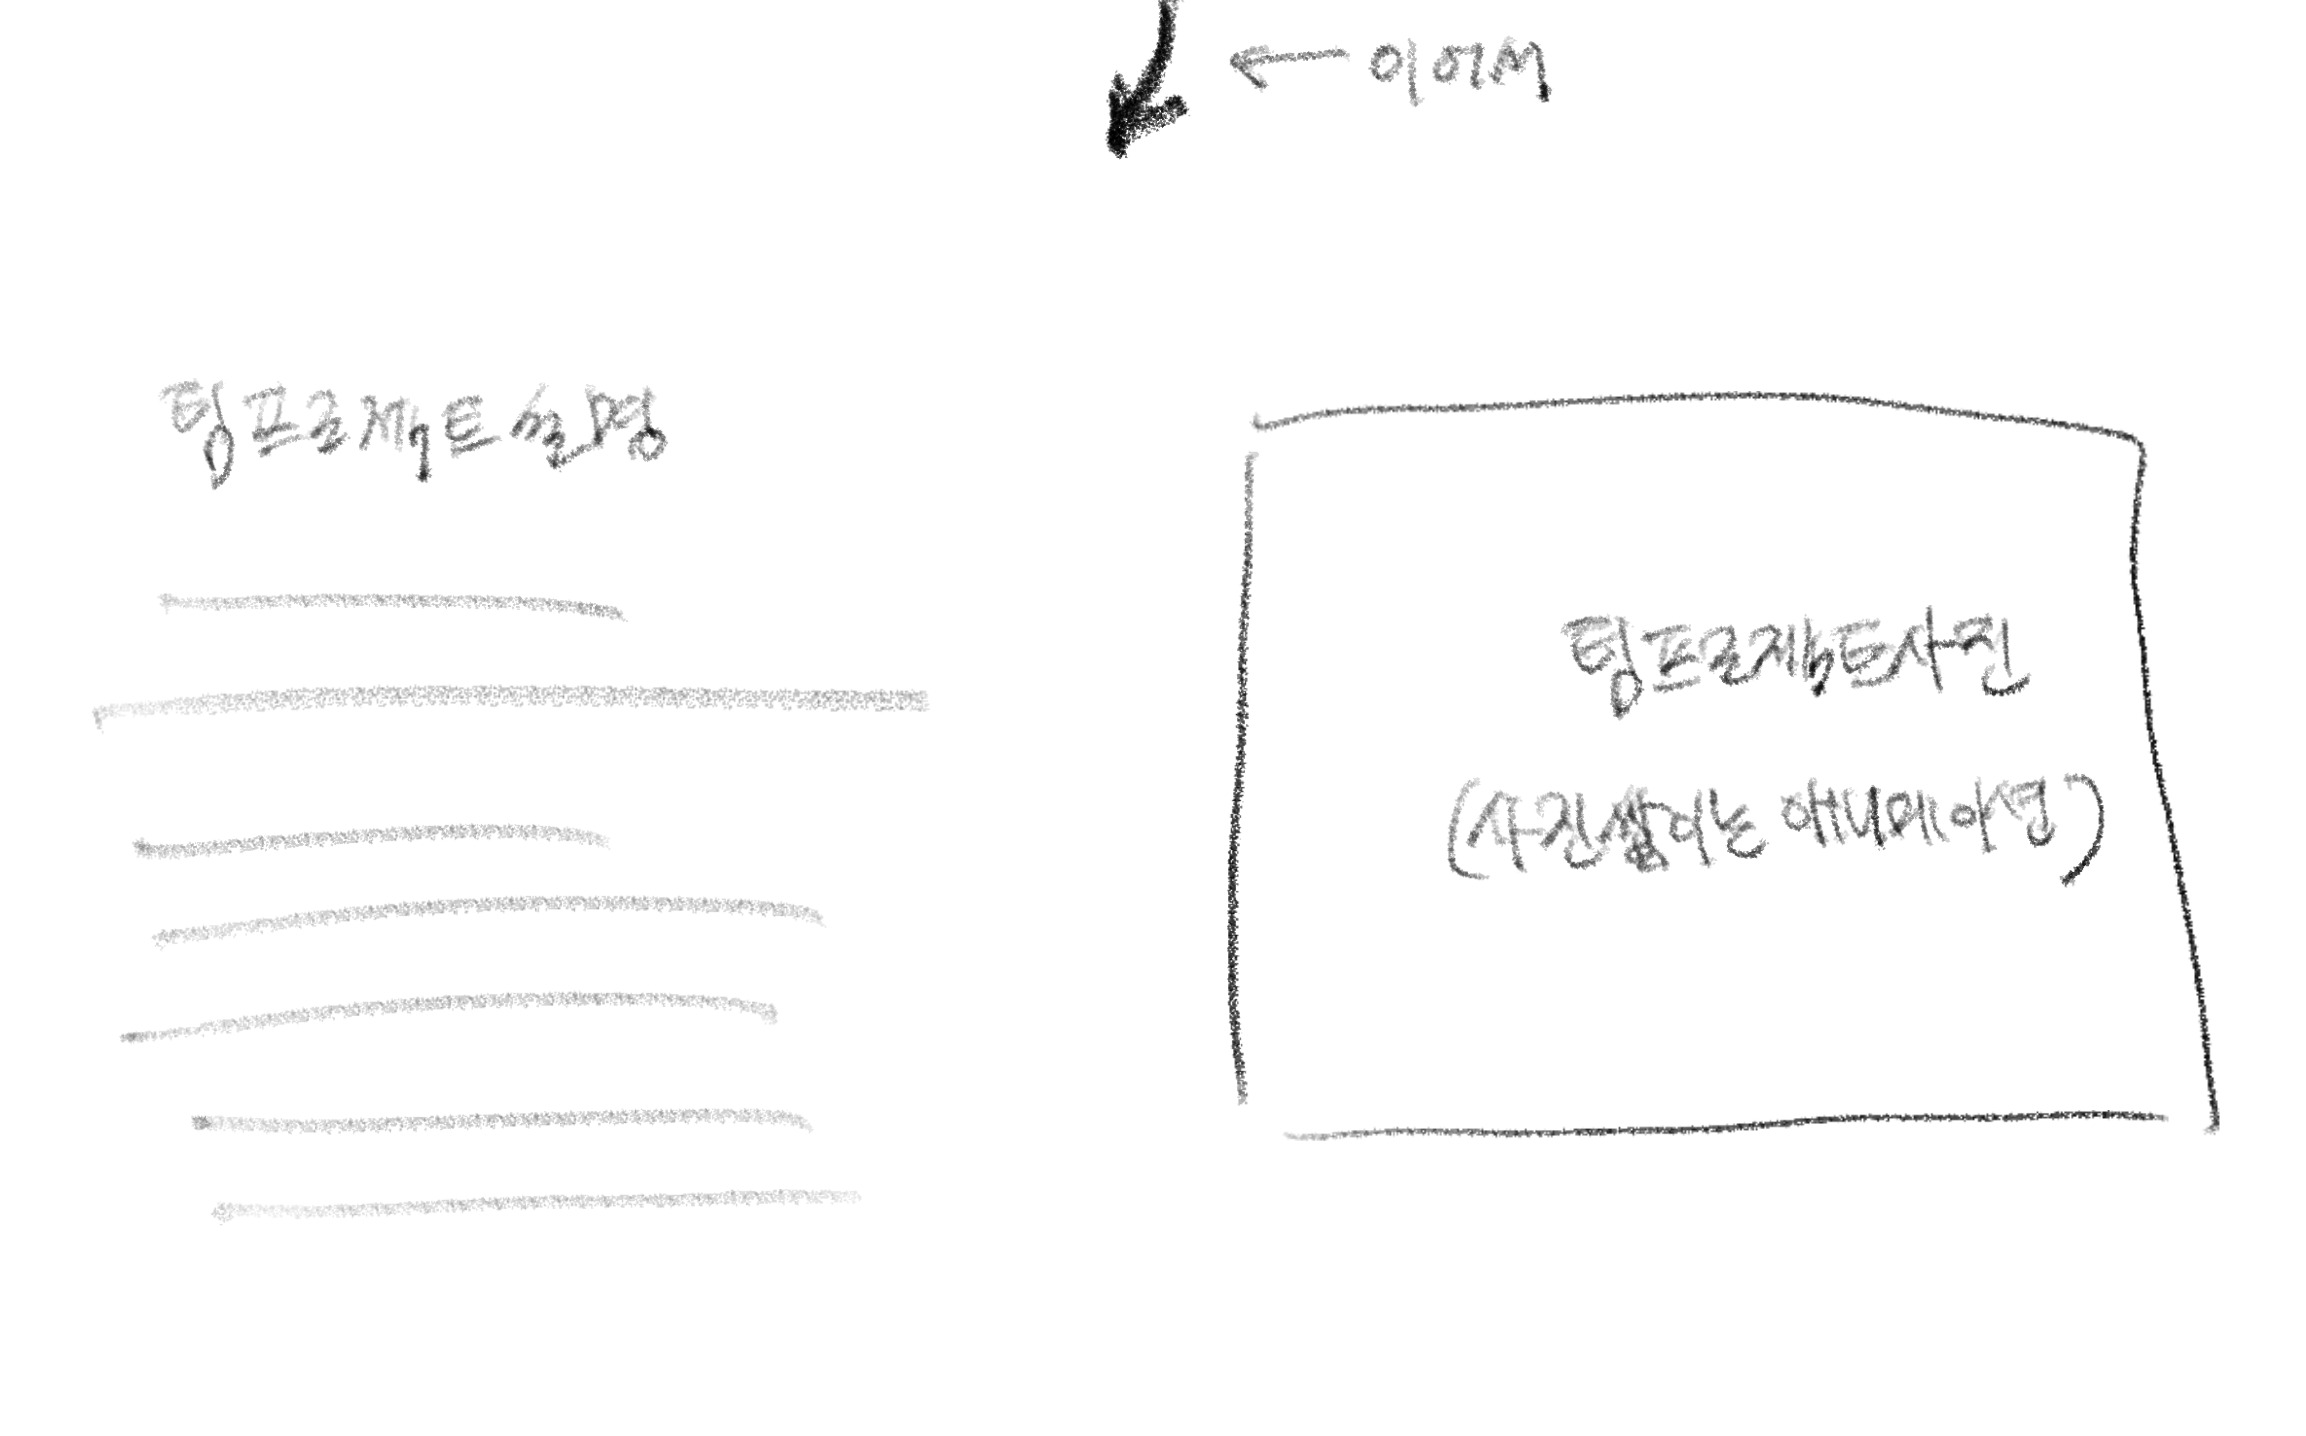 ← 이어서
팀프로젝트 설명
팀프로젝트사진
(사진쌓이는 애니메이션)